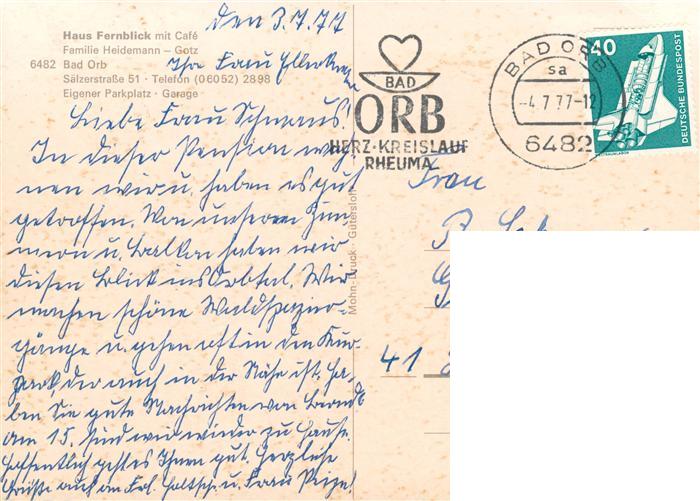 den 3.7.77
Haus Fernblick mit Café
Familie Heidemann – Gotz
6482 Bad Orb
Sälzerstraße 51 · Telefon (06052) 2898
Eigener Parkplatz · Garage
Ihre Frau
Liebe Frau Schwaus!
In dieser Pension woh-
nen wir u. haben es gut
getroffen. Von unserem Zim
mern u. Balkon haben wir
diesen Blick ins Orbtal. Wir
machen schöne Waldspazier-
gänge u. gehen oft in den Kur
park, der auch in der Nähe ist. Ha-
ben Sie gute Nachrichten von
Am 15. sind wir wieder zu Hause.
Hoffentlich geht es Ihnen gut. Herzliche
Grüße auch an Frl. u. Frau
Mohn-Druck · Gütersloh
BAD
ORB
HERZ-KREISLAUF
RHEUMA
BAD ORB
sa
-4.7.77-12
6482
40
DEUTSCHE BUNDESPOST
Frau
41